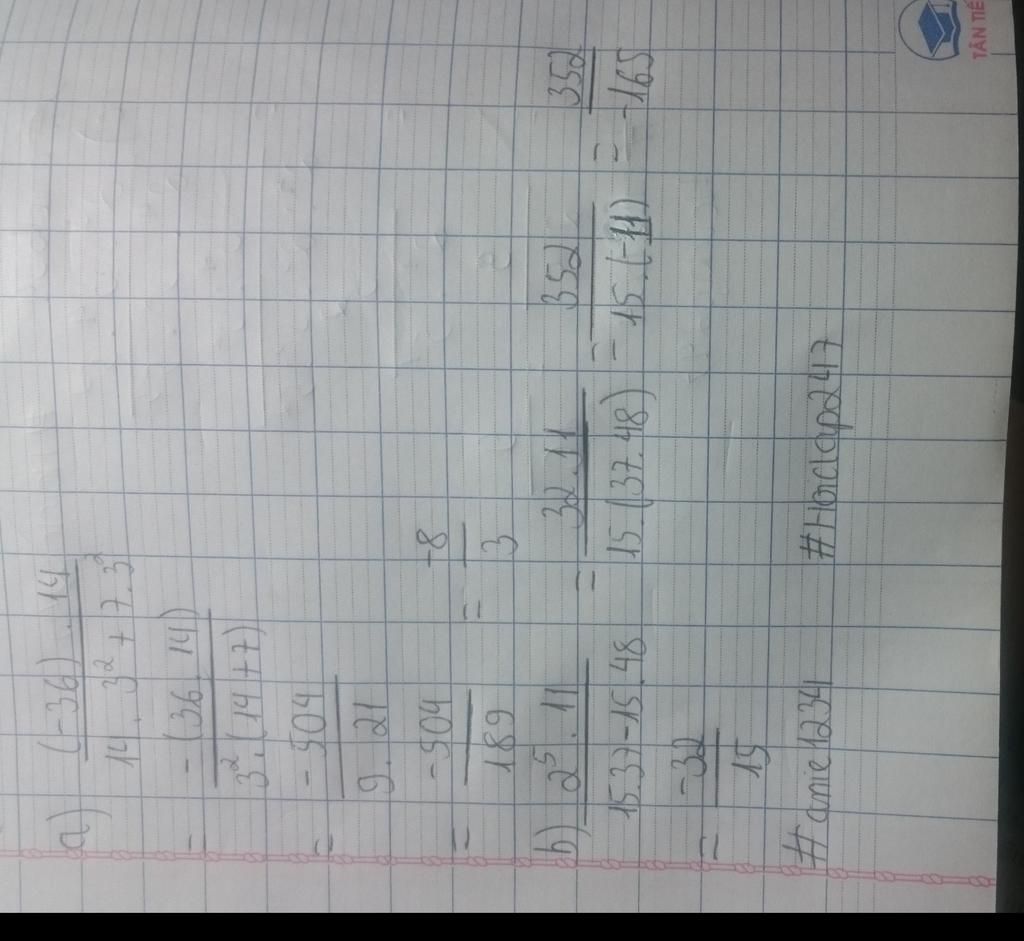 a) (-36) . 14 / 14 . 3² + 7.3²
= -(36 . 14) / 3².(14+7)
= -504 / 9.21
= -504 / 189 = -8 / 3
b) 2⁵ . 11 / 15.37-15.48 = 32.11 / 15.(37.48) = 352 / 15.(-11) = 352 / -165
= -32 / 15
#amie1234 #Hoidap247
TÂN TIẾ